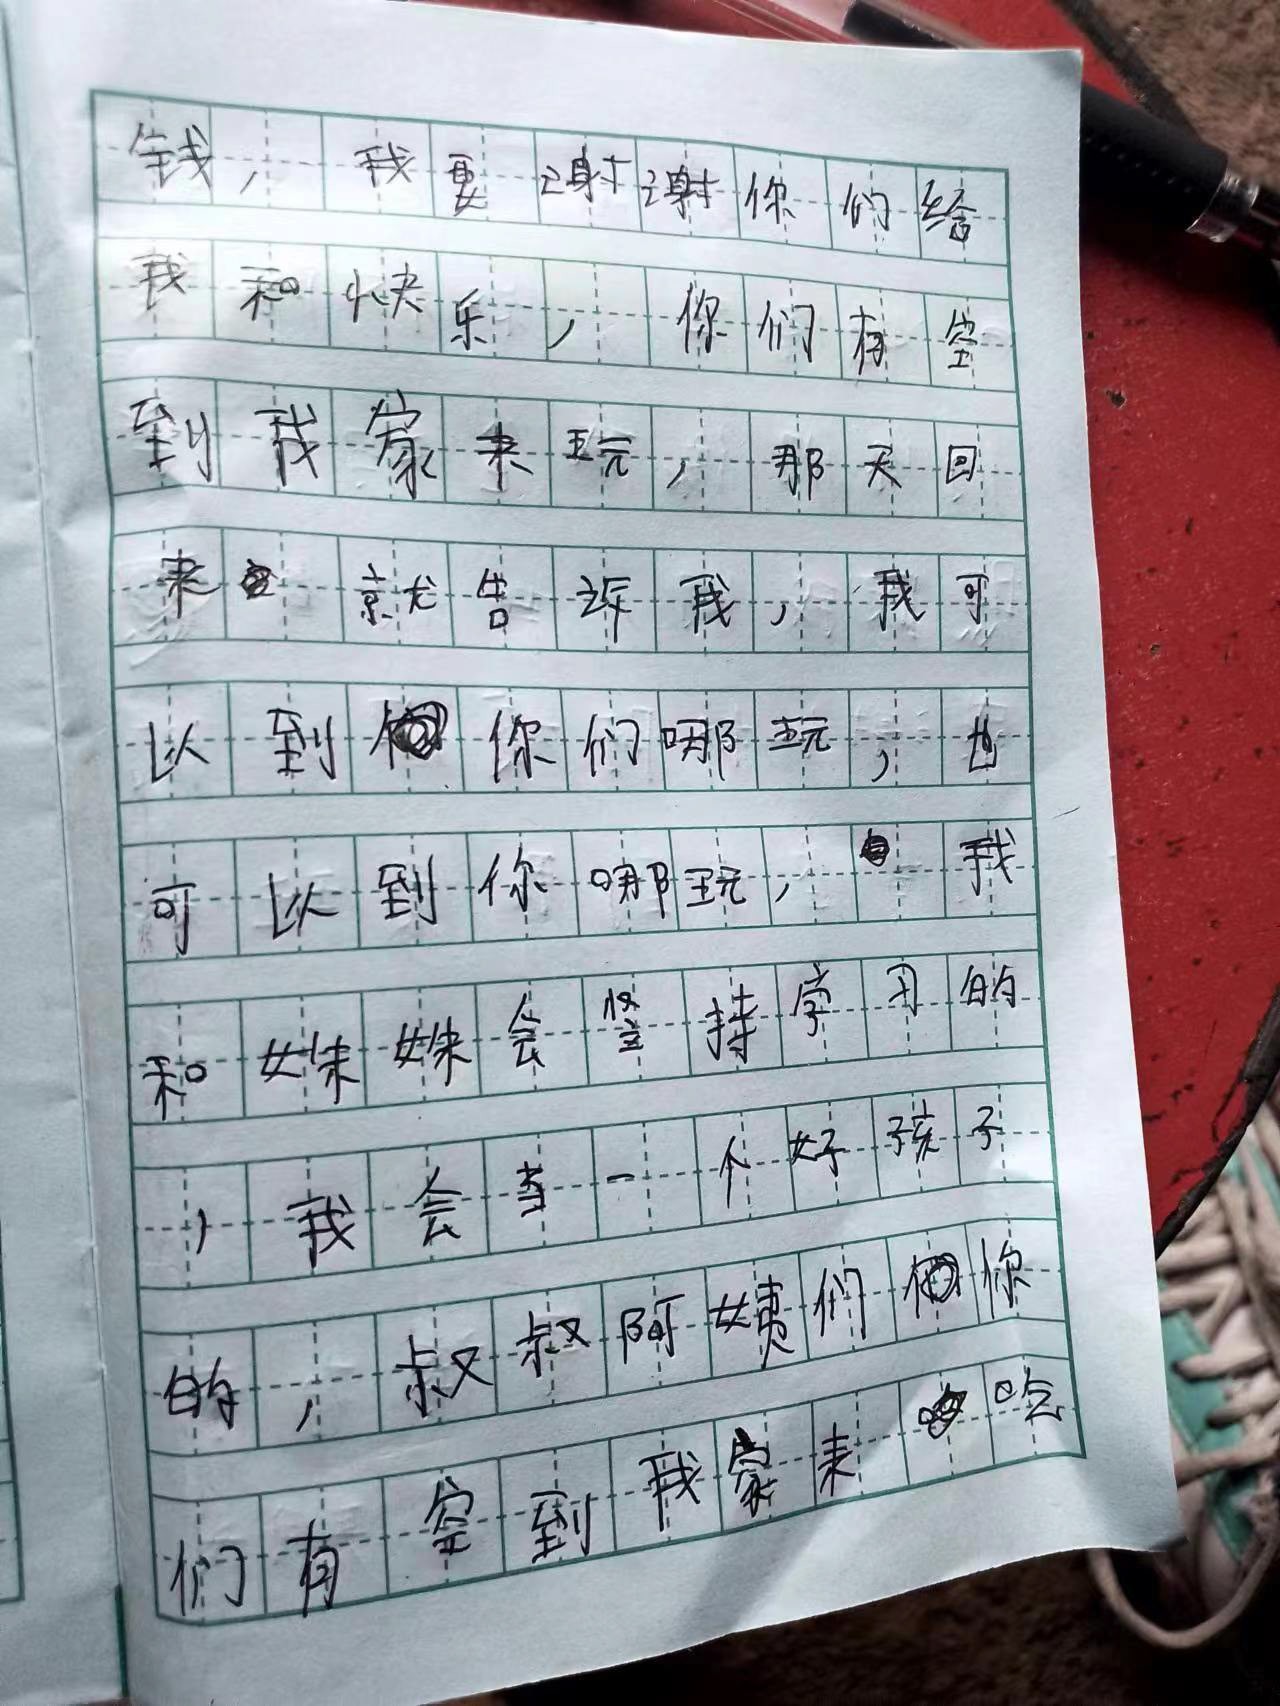 钱，我要谢谢你们给
我和快乐，你们有空
到我家来玩，那天回
来就告诉我，我可
以到你们哪玩，也
可以到你哪玩，我
和妹妹会坚持学习的
，我会当一个好孩子
的，叔叔阿姨们你
们有空到我家来吃